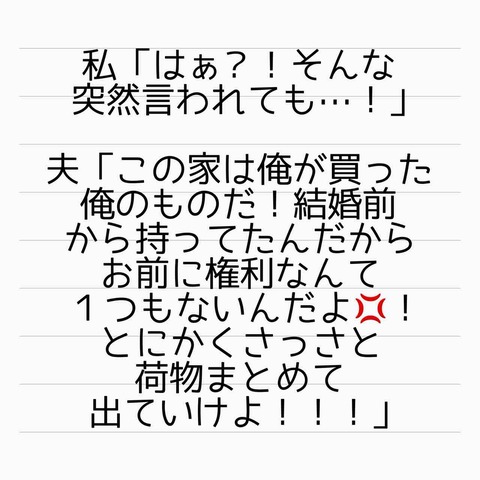 私「はぁ？！そんな
突然言われても…！」
夫「この家は俺が買った
俺のものだ！結婚前
から持ってたんだから
お前に権利なんて
１つもないんだよ💢！
とにかくさっさと
荷物まとめて
出ていけよ！！！」